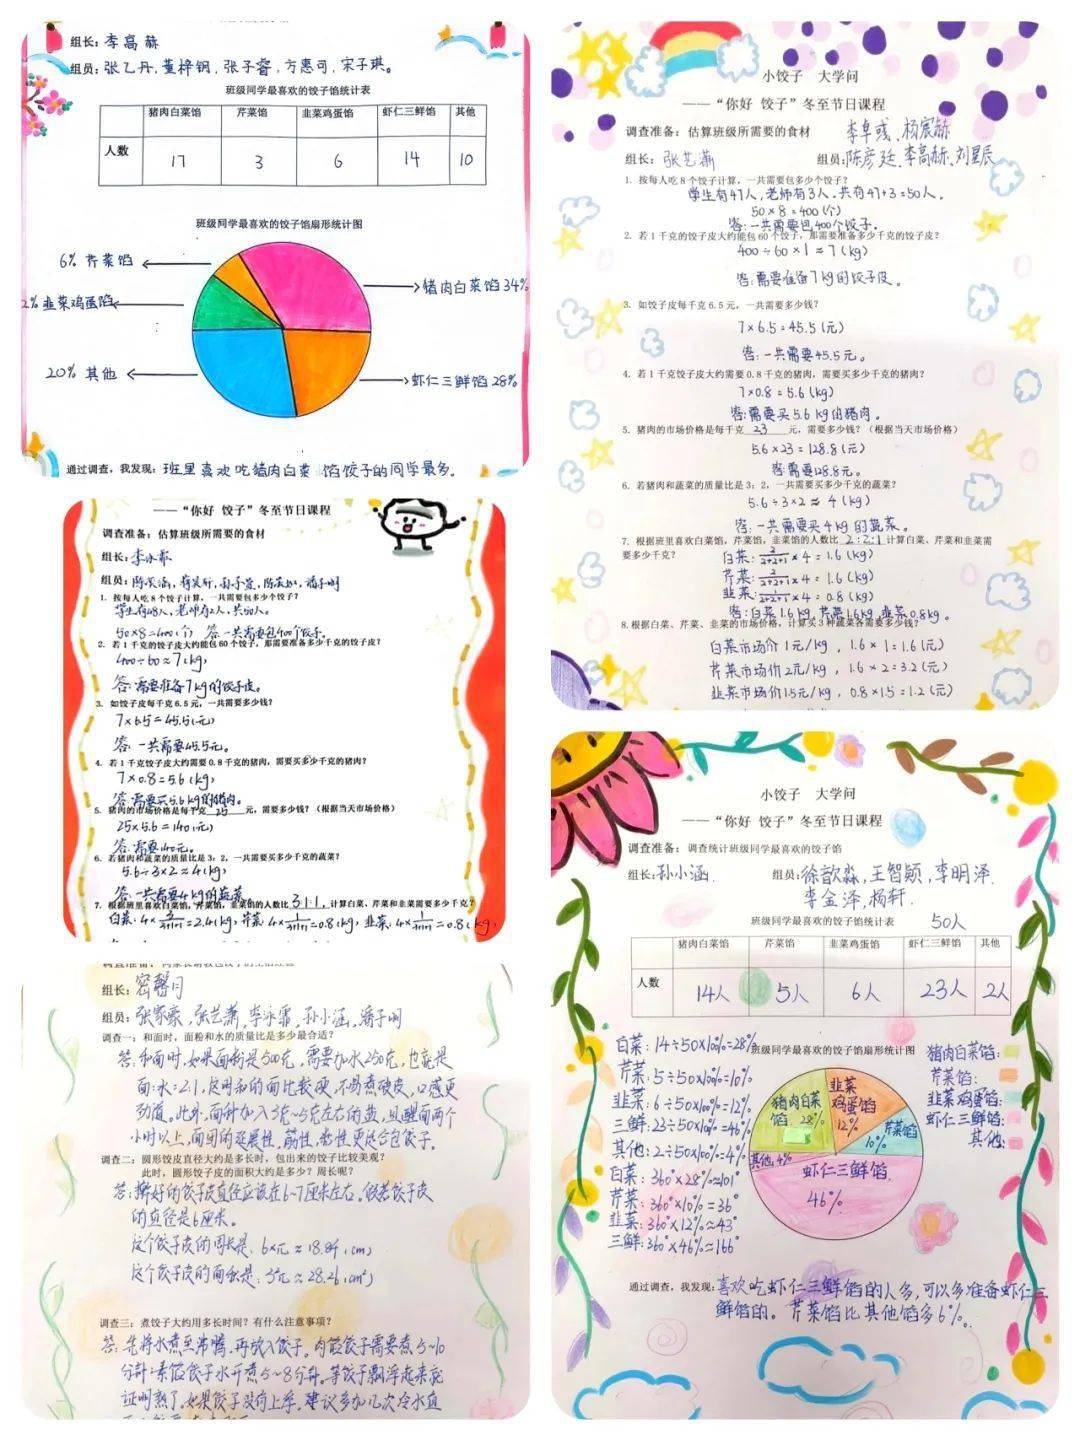 组长：李高赫
组员：张乙丹，董梓钥，张子睿，方惠可，宋子琪。
班级同学最喜欢的饺子馅统计表
猪肉白菜馅 芹菜馅 韭菜鸡蛋馅 虾仁三鲜馅 其他
人数 17 3 6 14 10
班级同学最喜欢的饺子馅扇形统计图
6% 芹菜馅
猪肉白菜馅34%
2%韭菜鸡蛋馅
20% 其他
虾仁三鲜馅28%
通过调查，我发现：班里喜欢吃猪肉白菜馅饺子的同学最多。
——“你好 饺子”冬至节日课程
调查准备：估算班级所需要的食材
组长：
组员：
1. 按每人吃8个饺子计算，一共需要包多少个饺子？
学生有48人，老师有2人，共50人。
50×8=400（个） 答：一共需要包400个饺子。
2. 若1千克的饺子皮大约能包60个饺子，那需要准备多少千克的饺子皮？
400÷60≈7(kg)
答：需要准备7kg的饺子皮。
3. 如饺子皮每千克6.5元，一共需要多少钱？
7×6.5=45.5(元)
答：一共需要45.5元。
4. 若1千克饺子皮大约需要0.8千克的猪肉，需要买多少千克的猪肉？
7×0.8=5.6(kg)
答：需要买5.6kg的猪肉。
5. 猪肉的市场价格是每千克25元，需要多少钱？（根据当天市场价格）
25×5.6=140(元)
答：需要140元。
6. 若猪肉和蔬菜的质量比是3：2，一共需要买多少千克的蔬菜？
5.6÷3×2≈4(kg)
答：一共需要4kg的蔬菜。
7. 根据班里喜欢白菜馅，芹菜馅，韭菜馅的人数比3:1:1，计算白菜、芹菜和韭菜需要多少千克？
白菜：4×3/3+1+1=2.4(kg)，芹菜：4×1/3+1+1=0.8(kg)，韭菜：4×1/3+1+1=0.8(kg)，
组长：密馨月
组员：张家豪，张艺潇，李泳霏，孙小涵，潘子明
调查一：和面时，面粉和水的质量比是多少最合适？
答：和面时，如果面粉是500克，需要加水250克，也就是
面:水=2:1，这用和的面比较硬，不易煮破皮，口感更
劲道。此外，面种加入3克~5克左右的盐，且醒面两个
小时以上，面团的延展性，筋性，黏性更适合包饺子。
调查二：圆形饺皮直径大约是多长时，包出来的饺子比较美观？
此时，圆形饺子皮的面积大约是多少？周长呢？
答：擀好的饺子皮直径应该在6~7厘米左右。假若饺子皮
的直径是6厘米。
这个饺子皮的周长是：6×π≈18.84(cm)
这个饺子皮的面积是：3²π≈28.26(cm²)
调查三：煮饺子大约用多长时间？有什么注意事项？
答：先将水煮至沸腾，再放入饺子。肉馅饺子需要煮5~10
分钟；素馅饺子水开煮5~8分钟。等饺子飘浮起来就
证明熟了。如果饺子没有上浮，建议多加几次冷水直
小饺子 大学问
——“你好 饺子”冬至节日课程
调查准备：估算班级所需要的食材 李卓彧、杨宸赫
组长：张艺潇 组员：陈彦廷、李高赫、刘星辰
1. 按每人吃8个饺子计算，一共需要包多少个饺子？
学生有47人，老师有3人，共有47+3=50人。
50×8=400(个)
答：一共需要包400个饺子。
2. 若1千克的饺子皮大约能包60个饺子，那需要准备多少千克的饺子皮？
400÷60×1≈7(kg)
答：需要准备7kg的饺子皮。
3. 如饺子皮每千克6.5元，一共需要多少钱？
7×6.5=45.5(元)
答：一共需要45.5元。
4. 若1千克饺子皮大约需要0.8千克的猪肉，需要买多少千克的猪肉？
7×0.8=5.6(kg)
答：需要买5.6kg的猪肉。
5. 猪肉的市场价格是每千克23元，需要多少钱？（根据当天市场价格）
5.6×23=128.8(元)
答：需要128.8元。
6. 若猪肉和蔬菜的质量比是3：2，一共需要买多少千克的蔬菜？
5.6÷3×2≈4(kg)
答：一共需要买4kg的蔬菜。
7. 根据班里喜欢白菜馅，芹菜馅，韭菜馅的人数比2:2:1计算白菜、芹菜和韭菜需
要多少千克？ 白菜：2/2+2+1×4=1.6(kg)
芹菜：2/2+2+1×4=1.6(kg)
韭菜：1/2+2+1×4=0.8(kg)
答：白菜1.6kg，芹菜1.6kg，韭菜0.8kg。
8. 根据白菜、芹菜、韭菜的市场价格，计算买3种蔬菜各需要多少钱？
白菜市场价1元/kg，1.6×1=1.6(元)
芹菜市场价2元/kg，1.6×2=3.2(元)
韭菜市场价1.5元/kg，0.8×1.5=1.2(元)
小饺子 大学问
——“你好 饺子”冬至节日课程
调查准备：调查统计班级同学最喜欢的饺子馅
组长：孙小涵 组员：徐歆淼，王智颖，李明泽
李金泽，杨轩.
班级同学最喜欢的饺子馅统计表 50人
猪肉白菜馅 芹菜馅 韭菜鸡蛋馅 虾仁三鲜馅 其他
人数 14人 5人 6人 23人 2人
班级同学最喜欢的饺子馅扇形统计图
白菜：14÷50×100%=28%
芹菜：5÷50×100%=10%
韭菜：6÷50×100%=12%
三鲜：23÷50×100%=46%
其他：2÷50×100%=4%
白菜：360°×28%≈101°
芹菜：360°×10%=36°
韭菜：360°×12%≈43°
三鲜：360°×46%≈166°
猪肉白菜馅 28%
韭菜鸡蛋馅 12%
芹菜馅 10%
其他4%
虾仁三鲜馅 46%
猪肉白菜馅：
芹菜馅：
韭菜鸡蛋馅：
虾仁三鲜馅：
其他：
通过调查，我发现：喜欢吃虾仁三鲜馅的人多，可以多准备虾仁三
鲜馅的。芹菜馅比其他馅多6%。